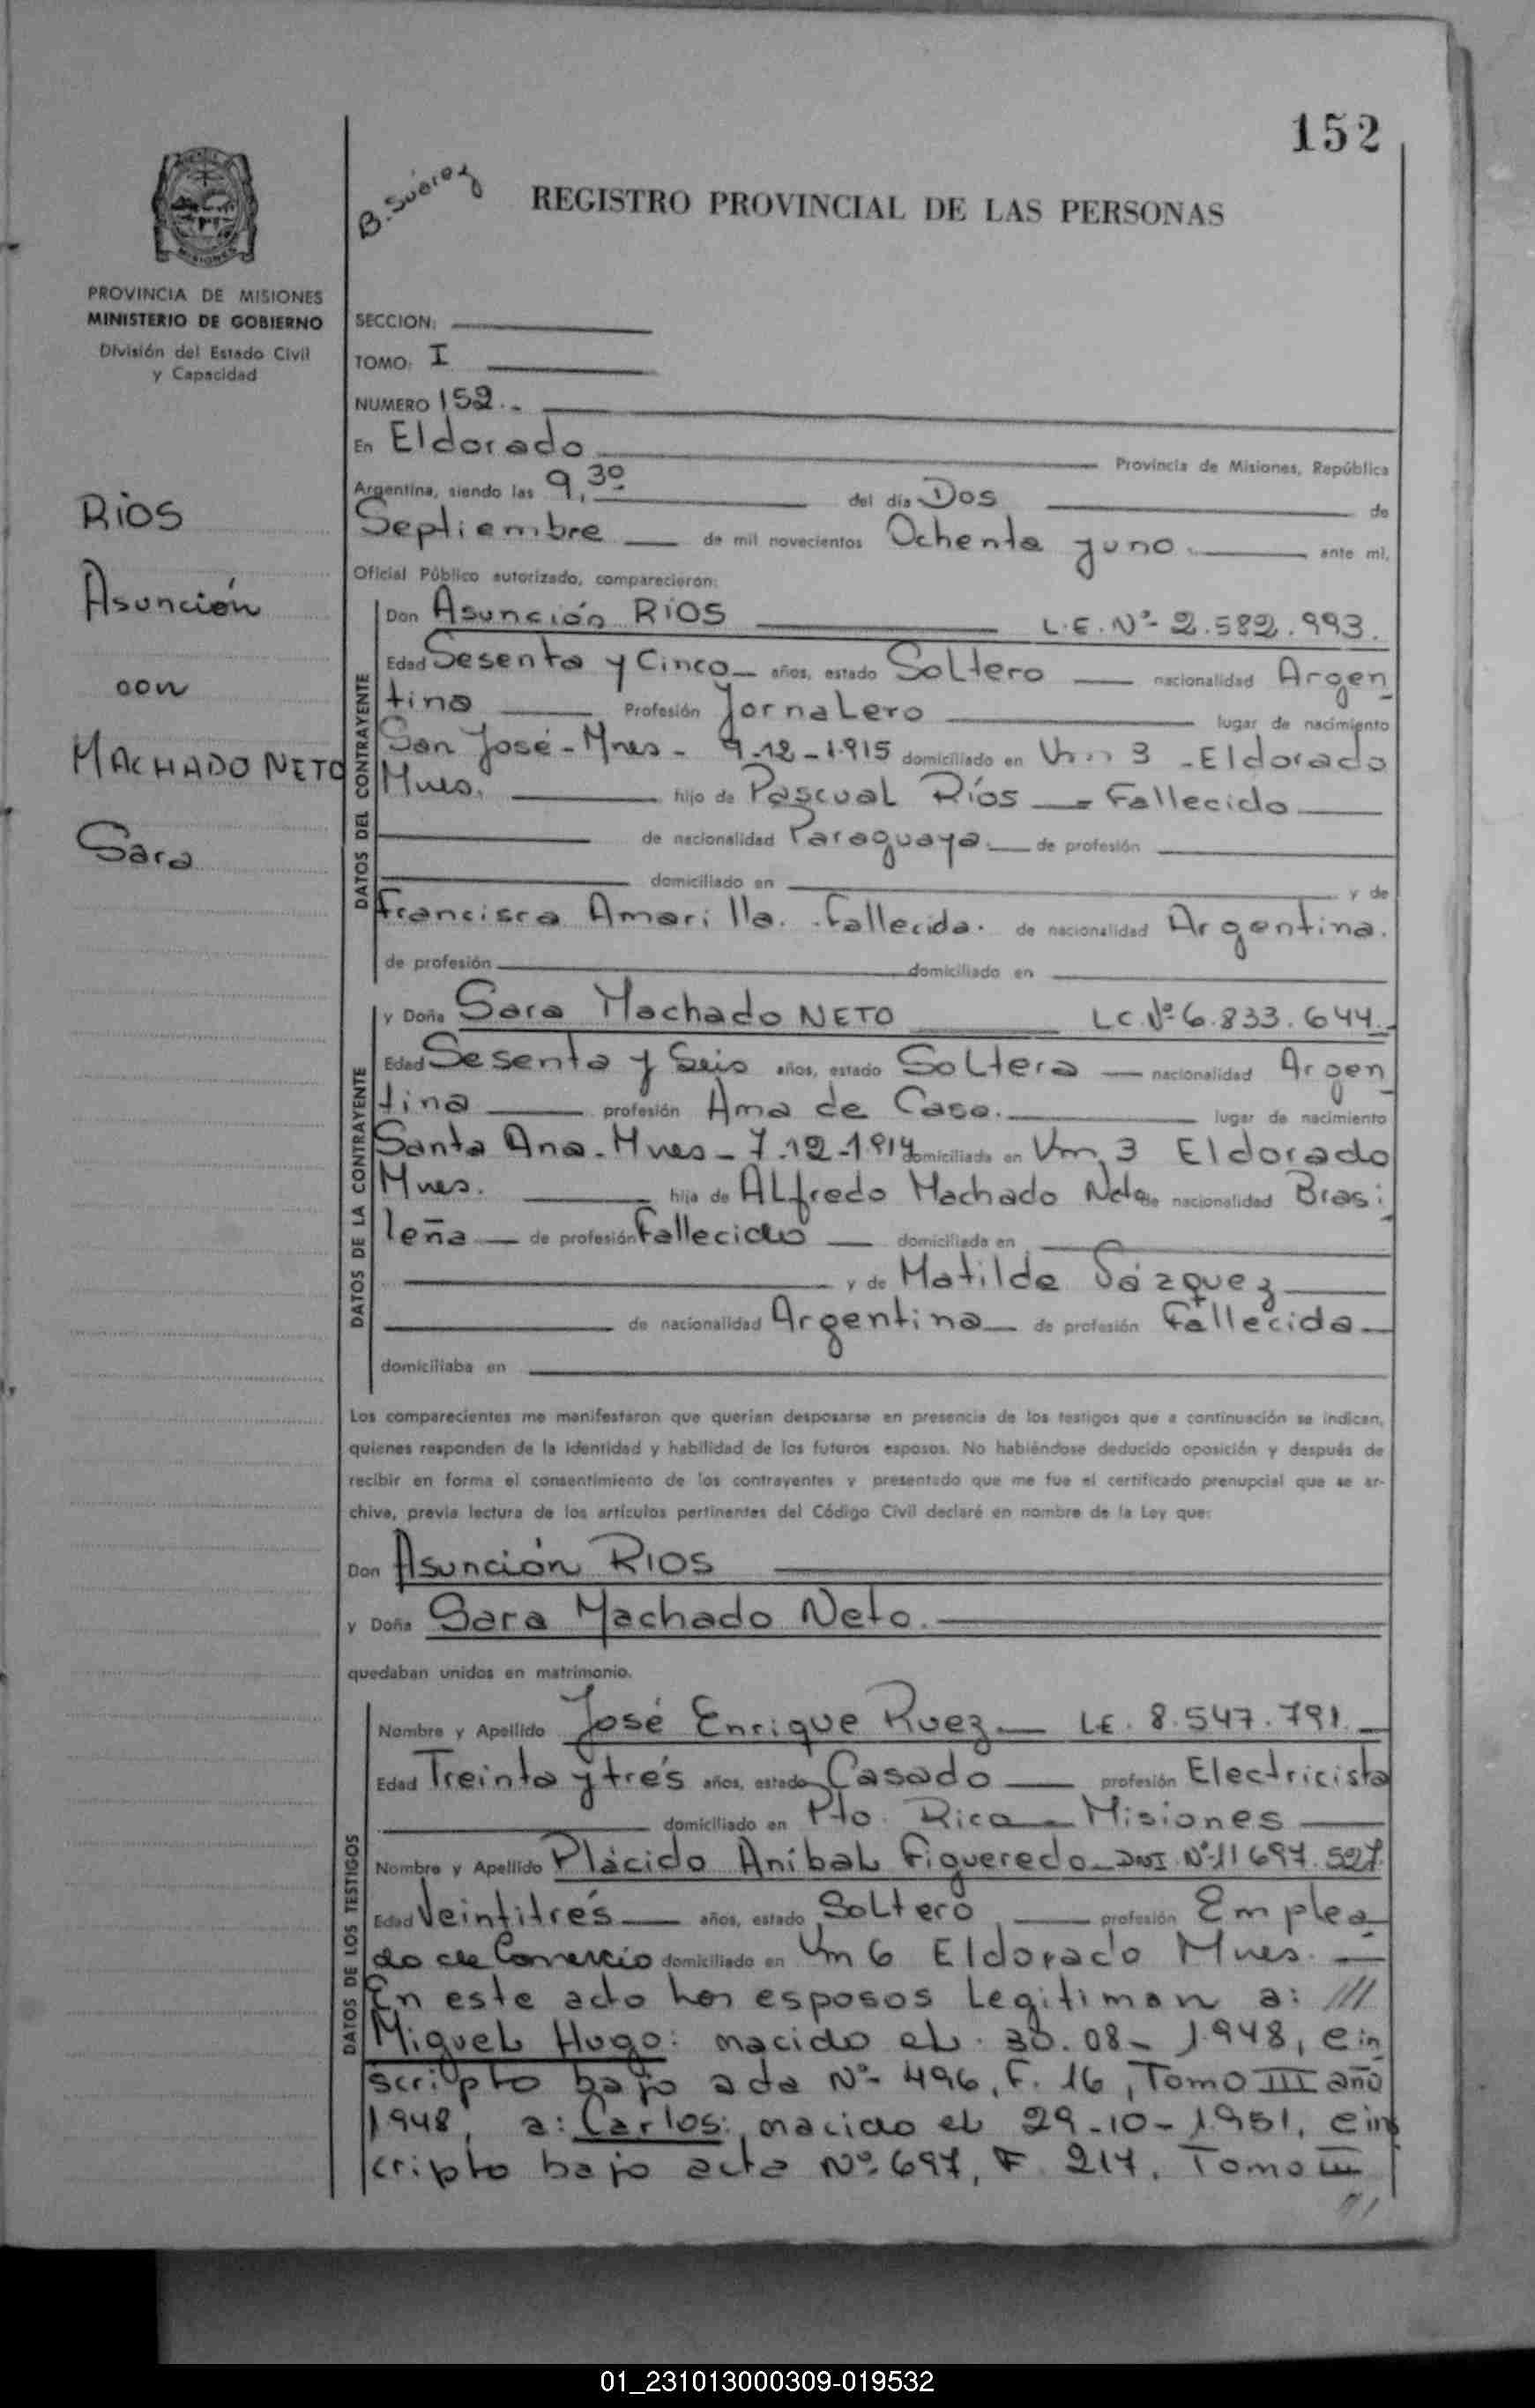 152
B. Suárez
REGISTRO PROVINCIAL DE LAS PERSONAS
MISIONES
PROVINCIA DE MISIONES
MINISTERIO DE GOBIERNO
División del Estado Civil
y Capacidad
SECCION:
TOMO: I
NUMERO 152.-
En Eldorado Provincia de Misiones, República
Argentina, siendo las 9,30 del día Dos de
Septiembre de mil novecientos Ochenta y uno. ante mí,
Oficial Público autorizado, comparecieron:
RIOS
Asunción
con
MACHADO NETO
Sara
DATOS DEL CONTRAYENTE
Don Asunción RIOS L.E. Nº- 2.582.993.
Edad Sesenta y Cinco años, estado Soltero nacionalidad Argen
tina Profesión Jornalero lugar de nacimiento
San José - Mnes - 9-12-1.915 domiciliado en Km 3 - Eldorado
Mnes. hijo de Pascual Ríos - Fallecido
de nacionalidad Paraguaya de profesión
domiciliado en y de
Francisca Amarilla. - Fallecida. de nacionalidad Argentina.
de profesión domiciliado en
DATOS DE LA CONTRAYENTE
y Doña Sara Machado NETO LC Nº 6.833.644.
Edad Sesenta y Seis años, estado Soltera nacionalidad Argen
tina profesión Ama de Casa. lugar de nacimiento
Santa Ana - Mnes - 7-12-1.914 domiciliada en Km, 3 Eldorado
Mnes. hija de Alfredo Machado Neto de nacionalidad Brasi
leña de profesión Fallecido domiciliado en
y de Matilde
de nacionalidad Argentina de profesión Fallecida
domiciliaba en
Los comparecientes me manifestaron que querían desposarse en presencia de los testigos que a continuación se indican,
quienes responden de la identidad y habilidad de los futuros esposos. No habiéndose deducido oposición y después de
recibir en forma el consentimiento de los contrayentes y presentado que me fue el certificado prenupcial que se ar-
chiva, previa lectura de los artículos pertinentes del Código Civil declaré en nombre de la Ley que:
Don Asunción RIOS
y Doña Sara Machado Neto.
quedaban unidos en matrimonio.
DATOS DE LOS TESTIGOS
Nombre y Apellido José Enrique Ruez LE. 8.547.791.
Edad Treinta y tres años, estado Casado profesión Electricista
domiciliado en Pto. Rico - Misiones
Nombre y Apellido Plácido Aníbal Figueredo - DNI. Nº 11 697.527.
Edad Veintitrés años, estado Soltero profesión Emplea
do de Comercio domiciliado en Km 6 Eldorado Mnes.
En este acto los esposos Legitiman a: ///
Miguel Hugo: nacido el 30.08-1.948, e in
scripto bajo acta Nº- 496, F. 16, Tomo III año
1948, a: Carlos: nacido el 29-10-1.951, e ins
cripto bajo acta Nº 697, F. 217, Tomo III
//
01_231013000309-019532